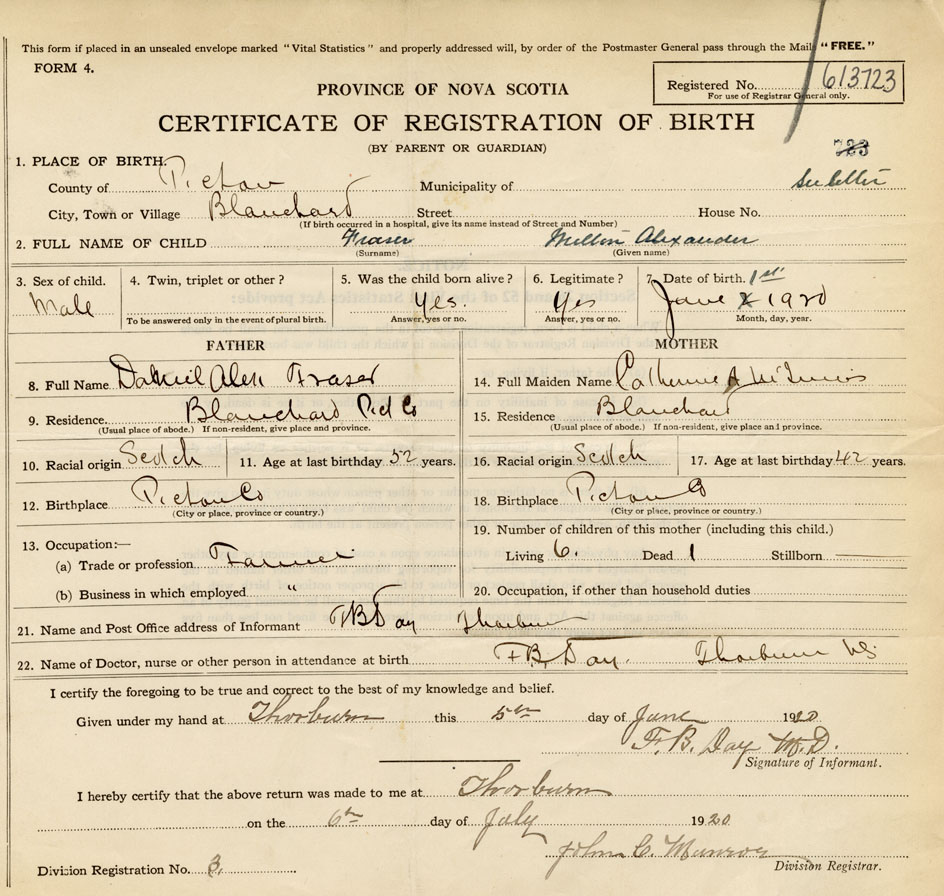 This form if placed in an unsealed envelope marked "Vital Statistics" and properly addressed will, by order of the Postmaster General pass through the Mail "FREE."
FORM 4.
Registered No. 613723
For use of Registrar General only.
PROVINCE OF NOVA SCOTIA
CERTIFICATE OF REGISTRATION OF BIRTH
(BY PARENT OR GUARDIAN)
723
1. PLACE OF BIRTH.
County of Pictou Municipality of
City, Town or Village Blanchard Street House No.
(If birth occurred in a hospital, give its name instead of Street and Number)
2. FULL NAME OF CHILD Fraser Milton Alexander
(Surname) (Given name)
3. Sex of child. 4. Twin, triplet or other? 5. Was the child born alive? 6. Legitimate? 7. Date of birth. 1st
Male Yes. Yes June 1920
To be answered only in the event of plural birth. Answer, yes or no. Answer, yes or no. Month, day, year.
FATHER
8. Full Name Daniel Alex Fraser
9. Residence Blanchard Pict Co
(Usual place of abode.) If non-resident, give place and province.
10. Racial origin Scotch 11. Age at last birthday 52 years.
12. Birthplace Pictou Co
(City or place, province or country.)
13. Occupation:—
(a) Trade or profession Farmer
(b) Business in which employed "
MOTHER
14. Full Maiden Name Catherine A McInnis
15. Residence Blanchard
(Usual place of abode.) If non-resident, give place and province.
16. Racial origin Scotch 17. Age at last birthday 42 years.
18. Birthplace Pictou Co
(City or place, province or country.)
19. Number of children of this mother (including this child.)
Living 6. Dead 1 Stillborn
20. Occupation, if other than household duties
21. Name and Post Office address of Informant F B Day Thorburn
22. Name of Doctor, nurse or other person in attendance at birth F. B. Day. Thorburn NS
I certify the foregoing to be true and correct to the best of my knowledge and belief.
Given under my hand at Thorburn this 5th day of June 1920
F. B. Day M.D.
Signature of Informant.
I hereby certify that the above return was made to me at Thorburn
on the 6th day of July 1920
John C. Munroe
Division Registration No. 3. Division Registrar.